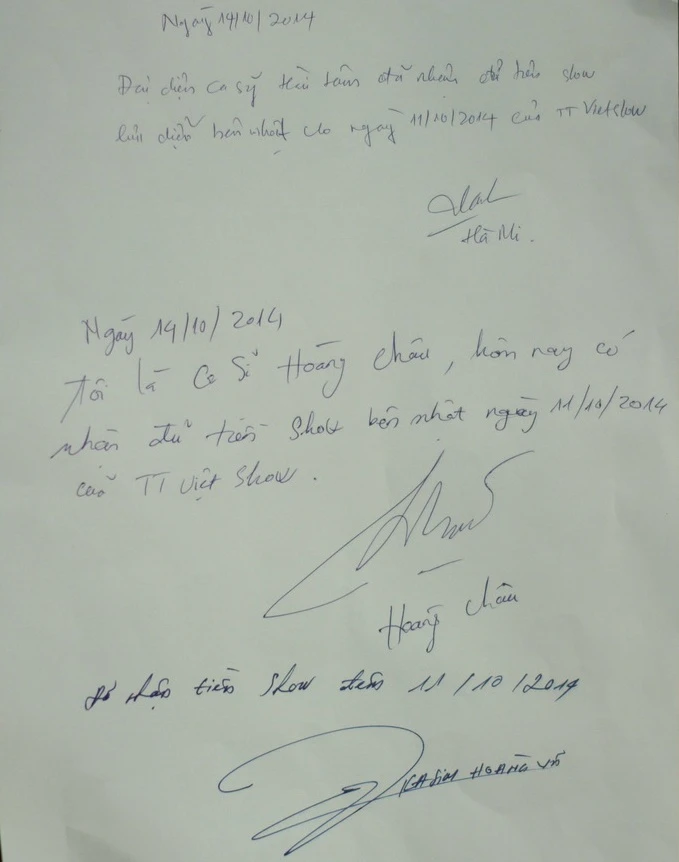 Ngày 14/10/2014
Đại diện ca sỹ Hà tâm đã nhận đủ tiền show
biểu diễn bên nhật vào ngày 11/10/2014 của TT Vietshow
Hà Mi.
Ngày 14/10/2014
Tôi là Ca Sĩ Hoàng Châu, hôm nay có
nhận đủ tiền Show bên nhật ngày 11/10/2014
của TT Việt Show.
Hoàng Châu
Đã nhận tiền Show đêm 11/10/2014
HOÀNG VŨ